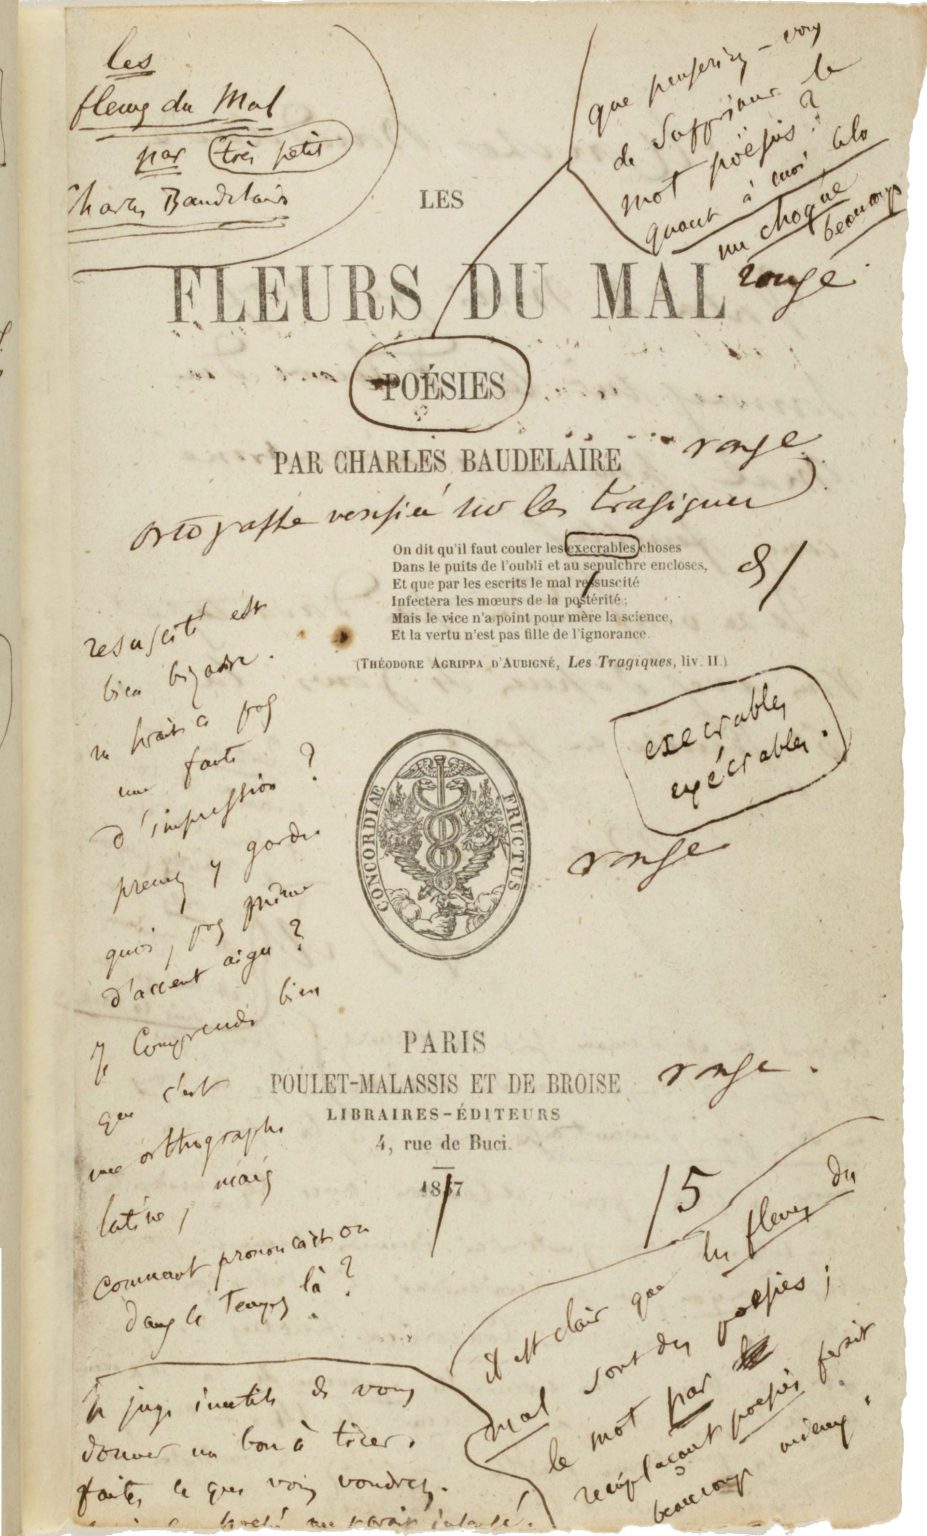 les
fleurs du Mal
par très petit
Charles Baudelaire
que penseriez-vous
de supprimer le
mot poësies ?
quant à moi cela
me choque
beaucoup
LES
FLEURS DU MAL
rouge
POÉSIES
PAR CHARLES BAUDELAIRE
rouge
sur les tragiques
On dit qu'il faut couler les execrables choses
Dans le puits de l'oubli et au sepulchre encloses,
Et que par les escrits le mal ressuscité
Infectera les mœurs de la postérité ;
Mais le vice n'a point pour mère la science,
Et la vertu n'est pas fille de l'ignorance.
(THÉODORE AGRIPPA D'AUBIGNÉ, Les Tragiques, liv. II.)
resuscité est
bien bizarre.
ne serait ce pas
une faute
d'impression ?
prenez y garde
quoi, pas même
d'accent aigu ?
Je comprends bien
que c'est
une orthographe
latine, mais
comment prononçait on
dans ce temps là ?
execrables
exécrables.
rouge
CONCORDIAE FRUCTUS
PARIS
POULET-MALASSIS ET DE BROISE
rouge.
LIBRAIRES-ÉDITEURS
4, rue de Buci.
1857
/5
il est clair que les fleurs du
mal sont des poësies ;
le mot par
remplaçant poësies ferait
beaucoup mieux.
Je juge inutile de vous
donner un bon à tirer.
faites ce que vous voudrez.